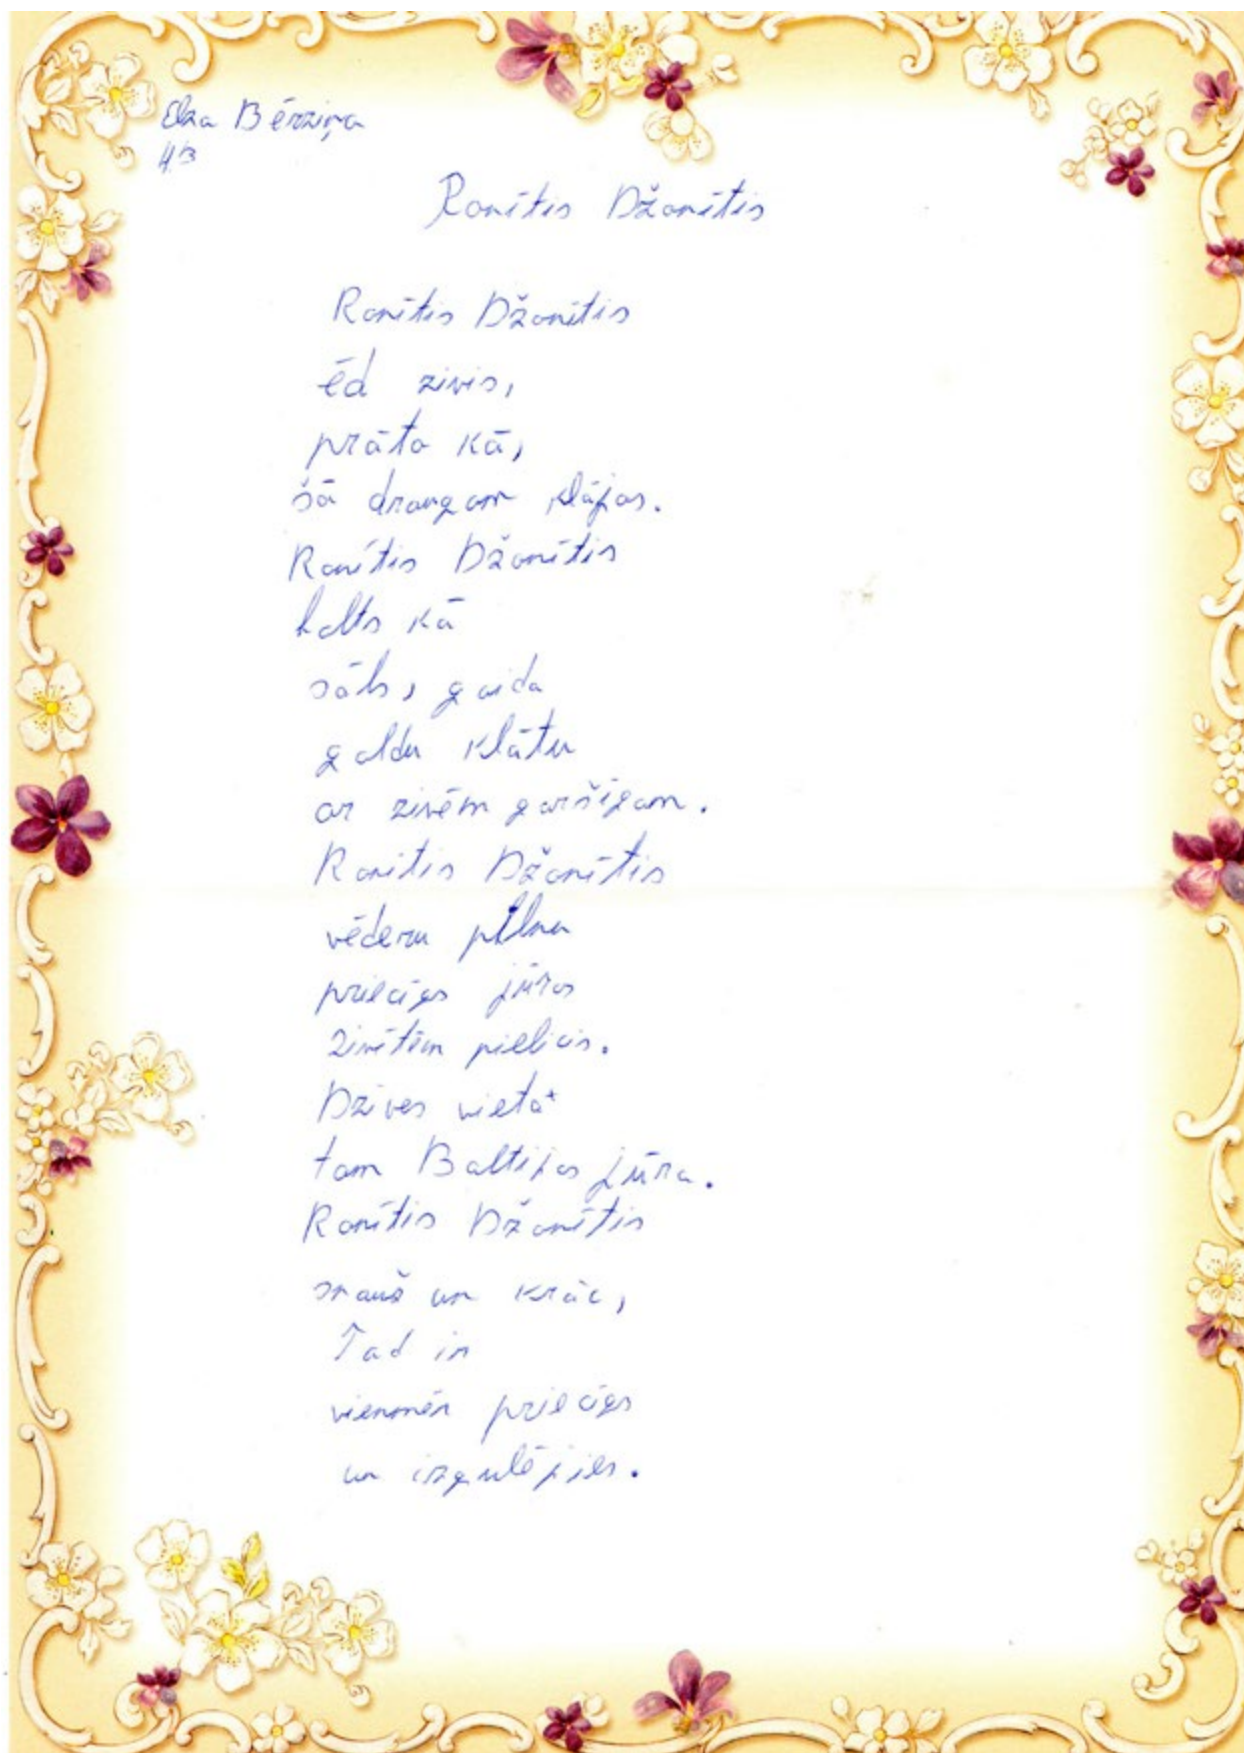 Elza Bērziņa
4.B
Ronītis Džonītis
Ronītis Džonītis
ēd zivis,
prāto kā,
šā draugam klājas.
Ronītis Džonītis
balts kā
sāls, gaida
galdu klātu
ar zivēm garšīgam.
Ronītis Džonītis
vēderu pilnu
priecīgs jūras
zivītēm pielicis.
Dzīves vieta
tam Baltijas jūra.
Ronītis Džonītis
snauž un krāc,
Tad ir
vienmēr priecīgs
un izgulējies.